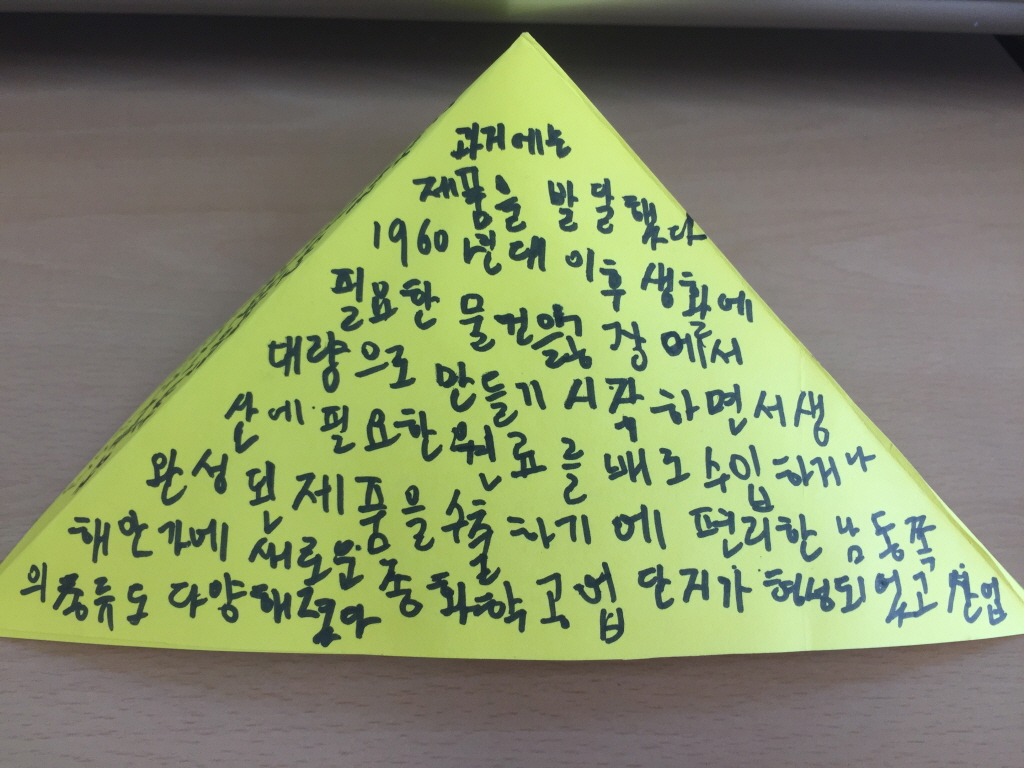 과거에는
제품을 발달했다
1960년대 이후 생활에
필요한 물건을 공장에서
대량으로 만들기 시작하면서 생
산에 필요한 원료를 배로 수입하거나
완성된 제품을 수출하기에 편리한 남동쪽
해안가에 새로운 중화학 공업 단지가 형성되었고 산업
의 종류도 다양해졌다